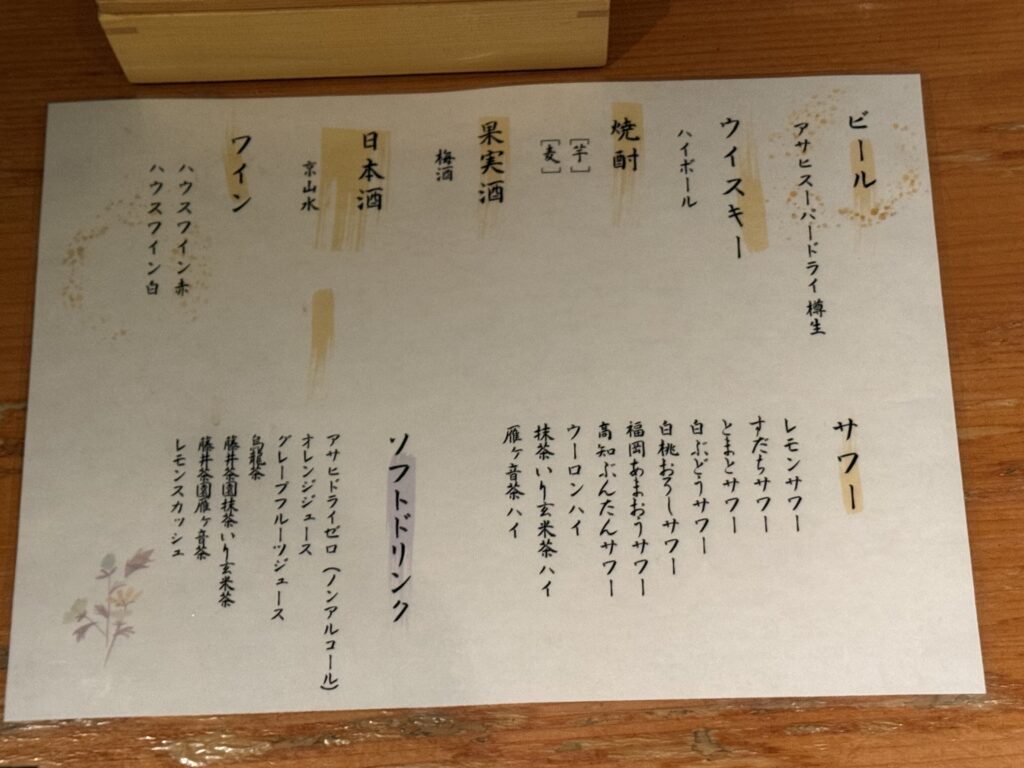 ビール
アサヒスーパードライ樽生
ウイスキー
ハイボール
焼酎
［芋］
［麦］
果実酒
梅酒
日本酒
京山水
ワイン
ハウスワイン赤
ハウスワイン白
サワー
レモンサワー
すだちサワー
とまとサワー
白ぶどうサワー
白桃おろしサワー
福岡あまおうサワー
高知ぶんたんサワー
ウーロンハイ
抹茶いり玄米茶ハイ
雁ヶ音茶ハイ
ソフトドリンク
アサヒドライゼロ（ノンアルコール）
オレンジジュース
グレープフルーツジュース
烏龍茶
藤井茶園抹茶いり玄米茶
藤井茶園雁ヶ音茶
レモンスカッシュ